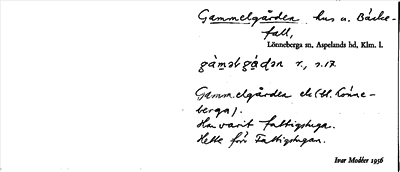 Gammelgården hus u. Bäcke-
fall,
Lönneberga sn, Aspelands hd, Klm. l.
gàməlgɑ̀ɖən r., s.17
Gammelgården ek (bl. Lönne-
berga).
Har varit fattigstuga.
Hette förr Fattigstugan.
Ivar Modéer 1936